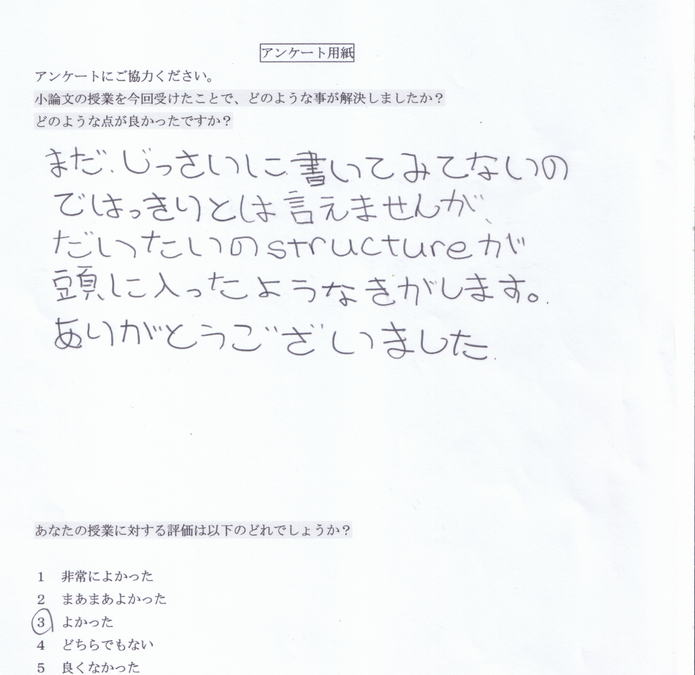 アンケート用紙
アンケートにご協力ください。
小論文の授業を今回受けたことで、どのような事が解決しましたか？
どのような点が良かったですか？
まだ、じっさいに書いてみてないの
ではっきりとは言えませんが、
だいったいのstructureが
頭に入ったようなきがします。
ありがとうございました
あなたの授業に対する評価は以下のどれでしょうか？
1 非常によかった
2 まあまあよかった
3 よかった
4 どちらでもない
5 良くなかった